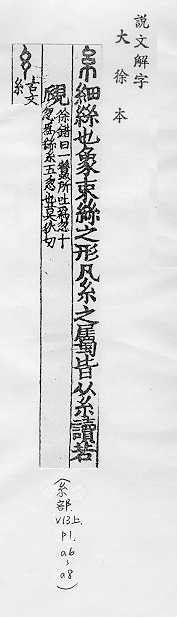 說文解字
大徐本
糸細絲也象束絲之形凡糸之屬皆从糸讀若
覛徐鍇曰一蠶所吐爲忽十
忽爲絲糸五忽也莫狄切
古文
糸
(糸部.V13上.P1.a6~a8)